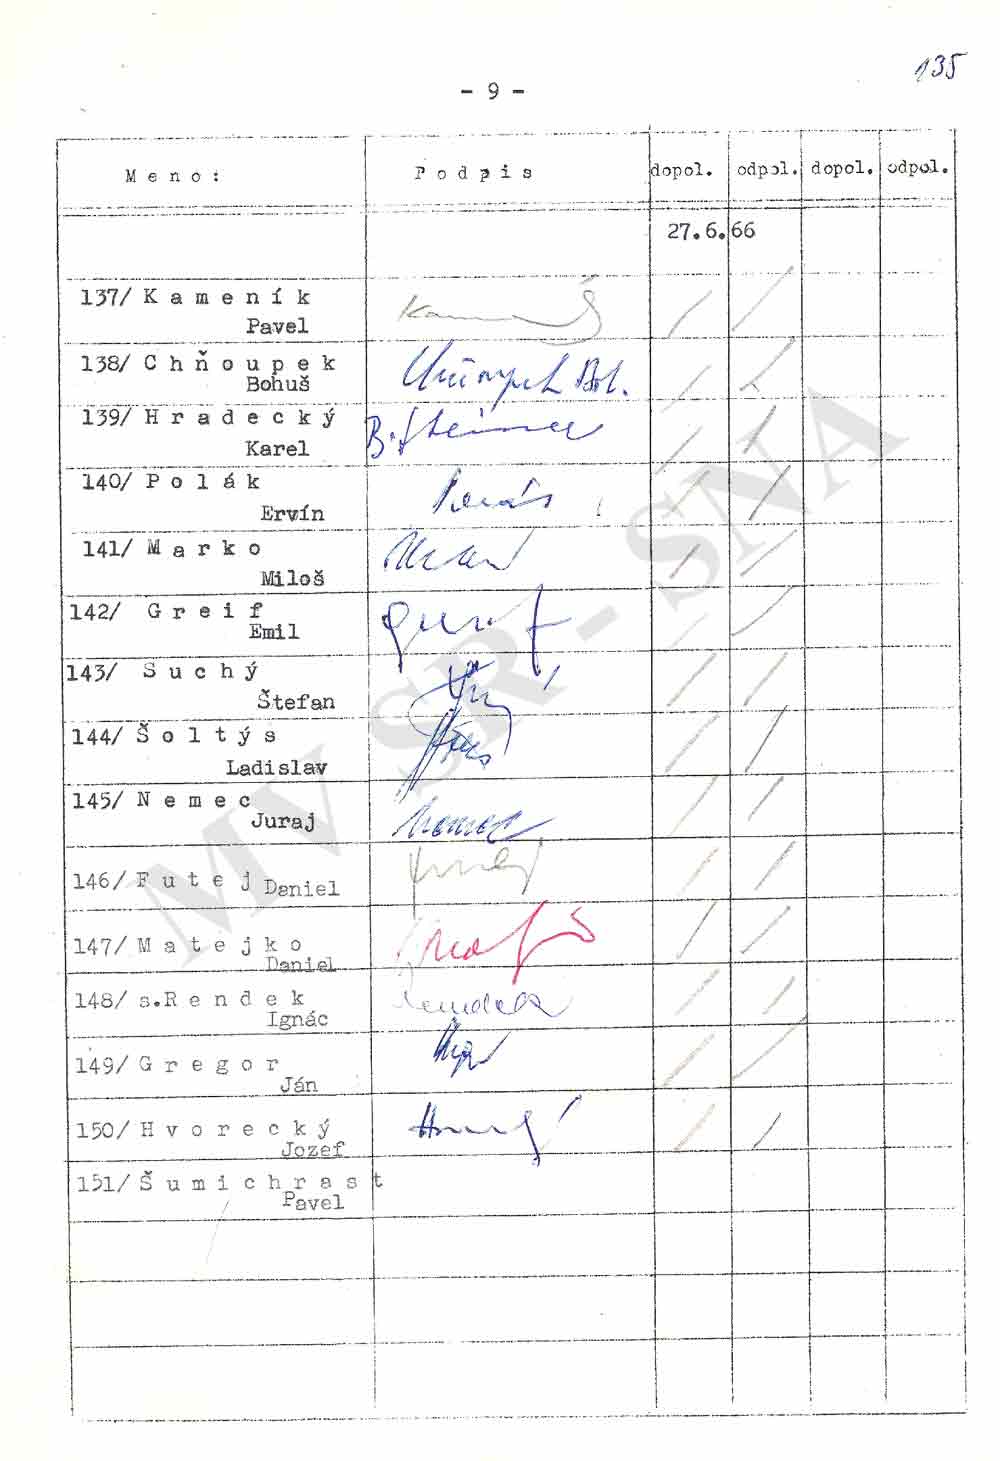 135
- 9 -
Meno: Podpis dopol. odpol. dopol. odpol.
27.6.66
137/ Kameník
Pavel
138/ Chňoupek
Bohuš
139/ Hradecký
Karel
140/ Polák
Ervín
141/ Marko
Miloš
142/ Greif
Emil
143/ Suchý
Štefan
144/ Šoltýs
Ladislav
145/ Nemec
Juraj
Nemec
146/ Futej Daniel
147/ Matejko
Daniel
148/ s.Rendek
Ignác
Rendek
149/ Gregor
Ján
150/ Hvorecký
Jozef
151/ Šumichrast
Pavel
MV SR - SNA